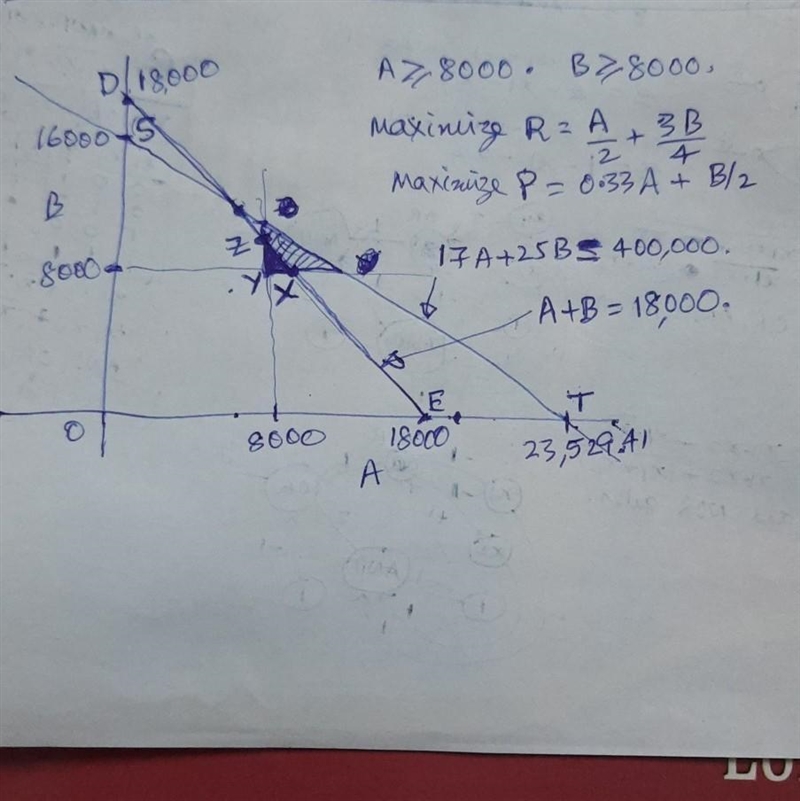 D 18,000
A ≥ 8000. B ≥ 8000,
16000 S
Maximize R = A/2 + 3B/4
Maximize P = 0.33A + B/2
B
Z
17A+25B ≤ 400,000.
8000
Y X
A+B = 18,000.
E T
O 8000 18000 23,529.41
A